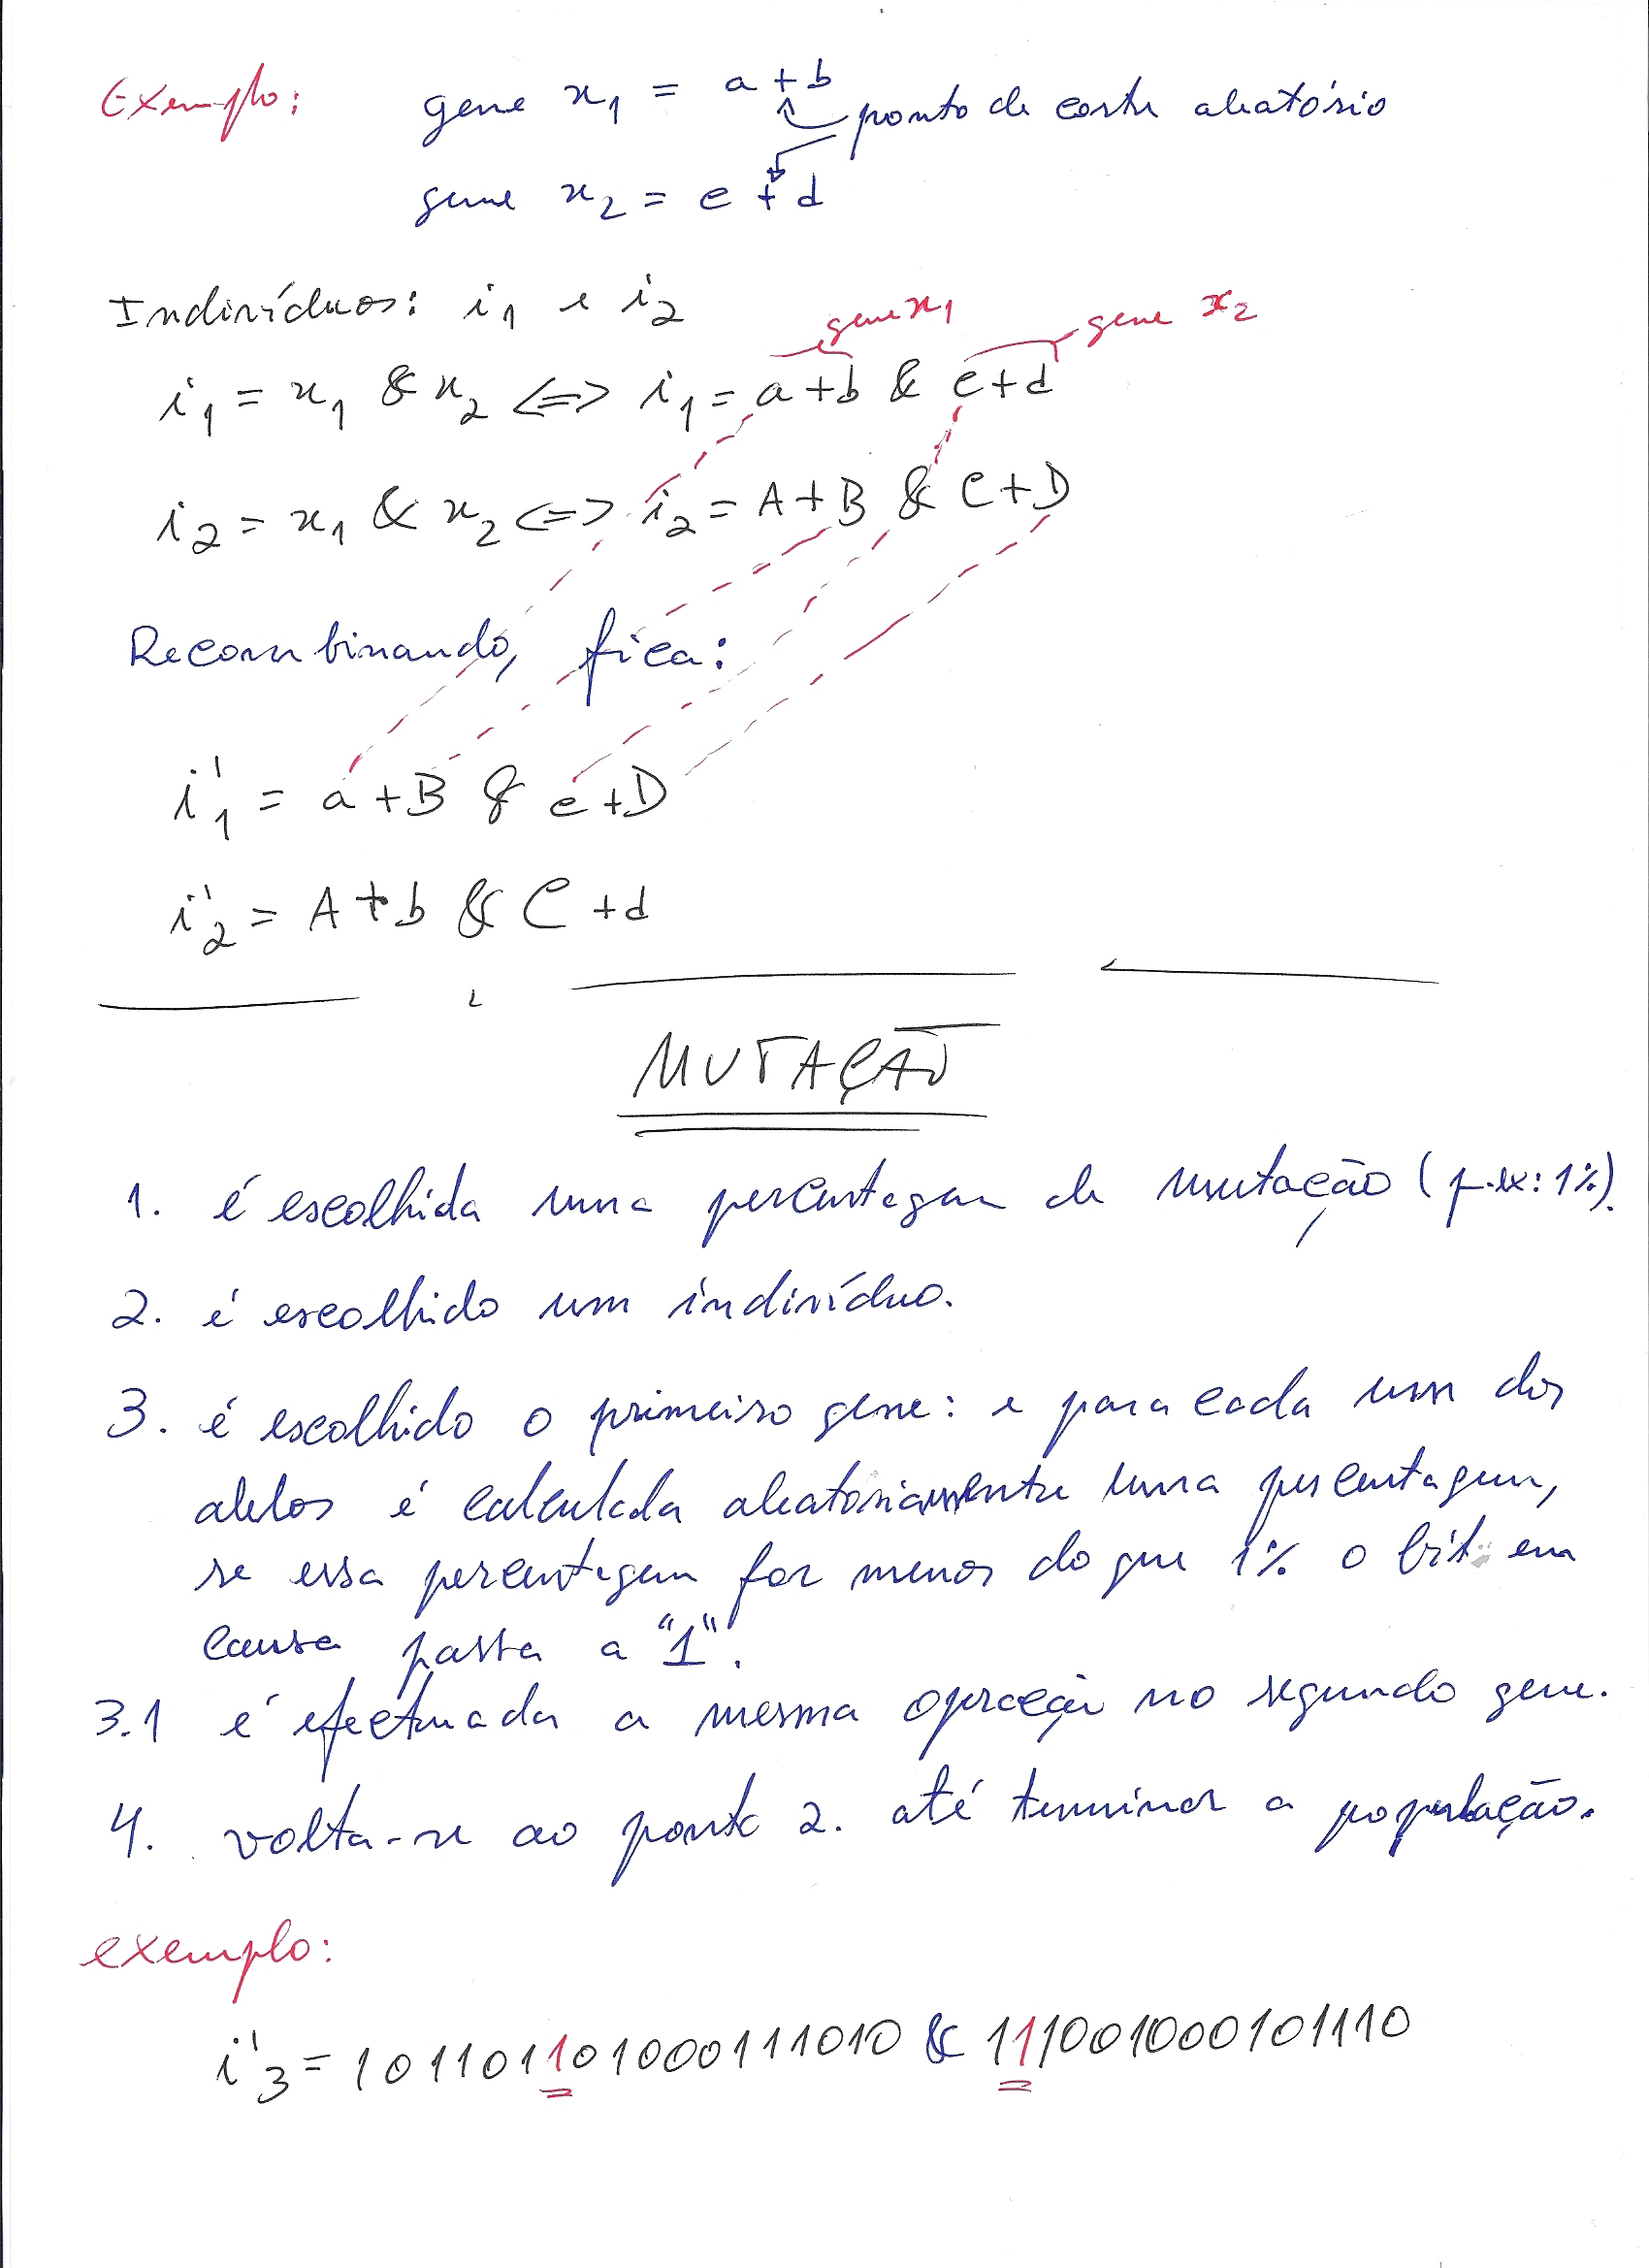 Exemplo: gene x1 = a+b
ponto de corte aleatório
gene x2 = c+d
Indivíduos: i1 e i2
gene x1 gene x2
i1 = x1 & x2 <=> i1 = a+b & c+d
i2 = x1 & x2 <=> i2 = A+B & C+D
Recombinando, fica:
i'1 = a+B & c+D
i'2 = A+b & C+d
MUTAÇÃO
1. é escolhida uma percentagem de mutação (p.ex: 1%).
2. é escolhido um indivíduo.
3. é escolhido o primeiro gene: e para cada um dos
alelos é calculada aleatoriamente uma percentagem,
se essa percentagem for menor do que 1% o bit em
causa passa a "1".
3.1 é efectuada a mesma operação no segundo gene.
4. volta-se ao ponto 2. até terminar a população.
exemplo:
i'3 = 101101101000111010 & 111001000101110